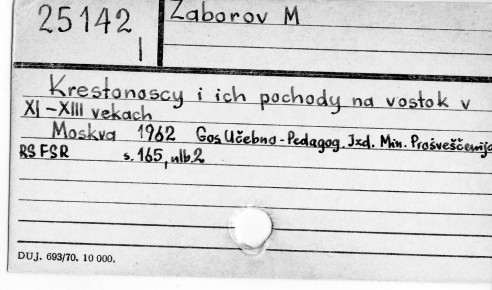 25142
I
Zaborov M
Krestonoscy i ich pochody na vostok v
XI-XIII vekach
Moskva 1962 Gos Učebno-Pedagog. Izd. Min. Prośveščenija
RSFSR s. 165, nlb. 2
DUJ. 693/70. 10 000.